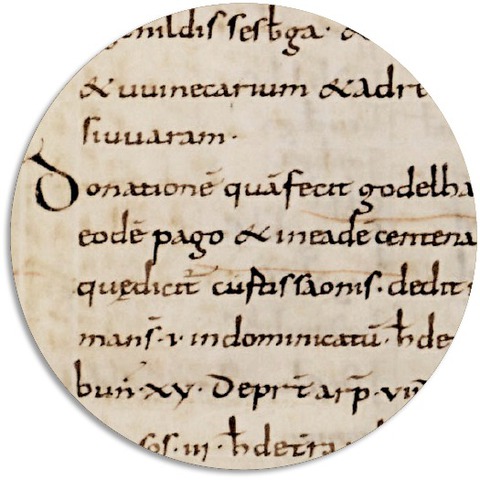 sesbga
& uuinecarium & adre
siuuaram.
Donationē quā fecit godelha
eodē pago & in eadē centena
quę dicit̄ custissaonis. dedit
mans̄. i. indominicatū. ħ de
bun̄. xv. De prat̄ arp̄. vii
sos. iii. ħ de tr̄a.